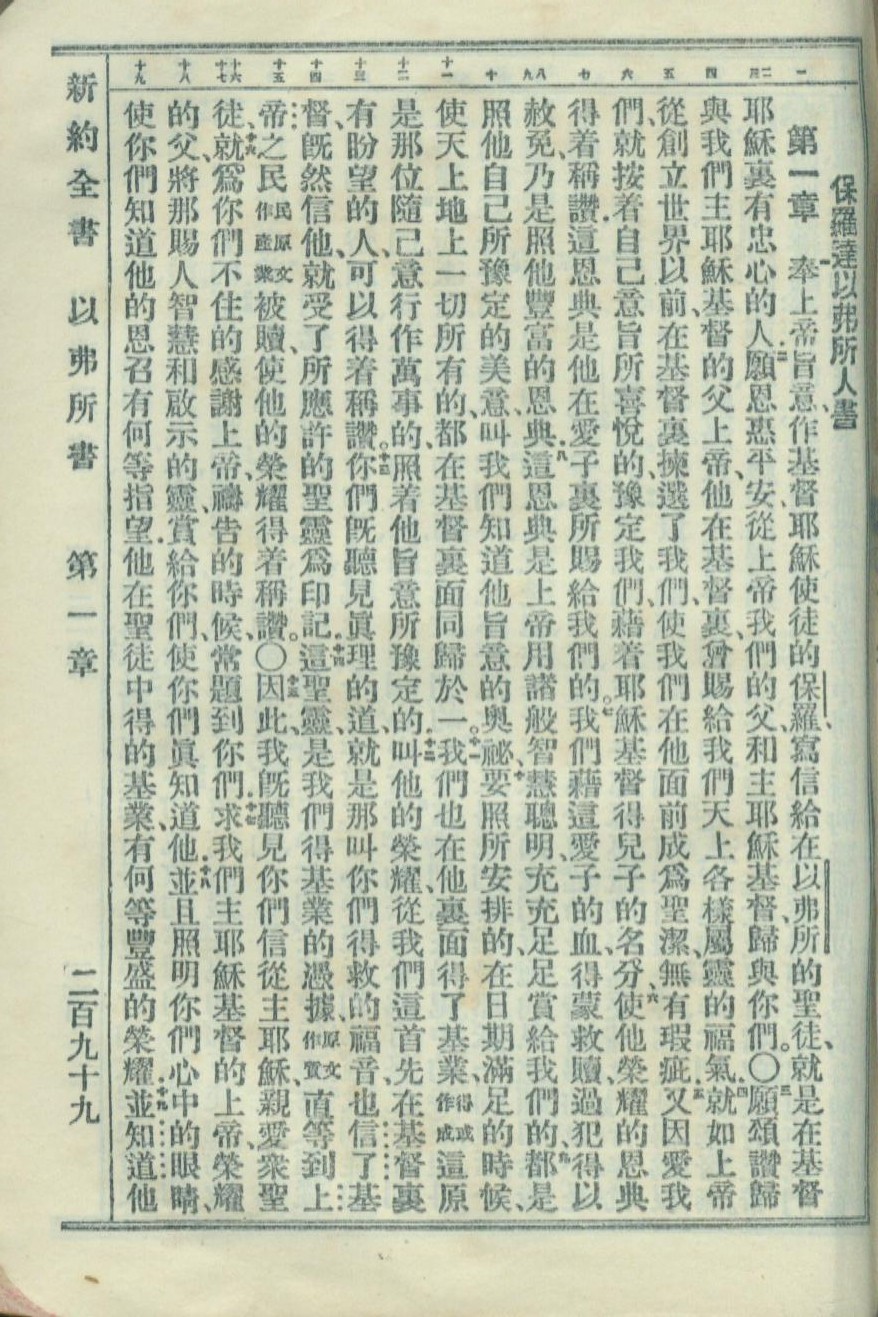 保羅達以弗所人書
一
二 三
四
五
六
七
八 九
十
十一
十二
十三
十四
十五
十六 十七
十八
十九
第一章 奉上帝旨意、作基督耶穌使徒的保羅、寫信給在以弗所的聖徒、就是在基督
耶穌裏有忠心的人、二願恩惠平安、從上帝我們的父、和主耶穌基督、歸與你們。〇三願頌讚歸
與我們主耶穌基督的父上帝、他在基督裏、曾賜給我們天上各樣屬靈的福氣、四就如上帝
從創立世界以前、在基督裏揀選了我們、使我們在他面前成爲聖潔、無有瑕疵、五又因愛我
們、就按着自己意旨所喜悅的、豫定我們、藉着耶穌基督得兒子的名分、六使他榮耀的恩典
得着稱讚、這恩典是他在愛子裏所賜給我們的。七我們藉這愛子的血、得蒙救贖、過犯得以
赦免、乃是照他豐富的恩典、八這恩典是上帝用諸般智慧聰明、充充足足賞給我們的、九都是
照他自己所豫定的美意、叫我們知道他旨意的奧祕、十要照所安排的、在日期滿足的時候、
使天上地上一切所有的、都在基督裏面同歸於一。十一我們也在他裏面得了基業、得或作成這原
是那位隨己意行作萬事的、照着他旨意所豫定的、十二叫他的榮耀、從我們這首先在基督裏
有盼望的人、可以得着稱讚。十三你們旣聽見眞理的道、就是那叫你們得救的福音、也信了基
督、旣然信他、就受了所應許的聖靈爲印記。十四這聖靈、是我們得基業的憑據、原文作質直等到上
帝之民民原文作產業被贖、使他的榮耀得着稱讚。〇十五因此、我旣聽見你們信從主耶穌、親愛衆聖
徒、十六就爲你們不住的感謝上帝、禱告的時候、常題到你們、十七求我們主耶穌基督的上帝、榮耀
的父、將那賜人智慧和啟示的靈、賞給你們、使你們眞知道他、十八並且照明你們心中的眼睛、
使你們知道他的恩召有何等指望、他在聖徒中得的基業、有何等豐盛的榮耀、十九並知道他
新約全書 以弗所書 第一章 二百九十九